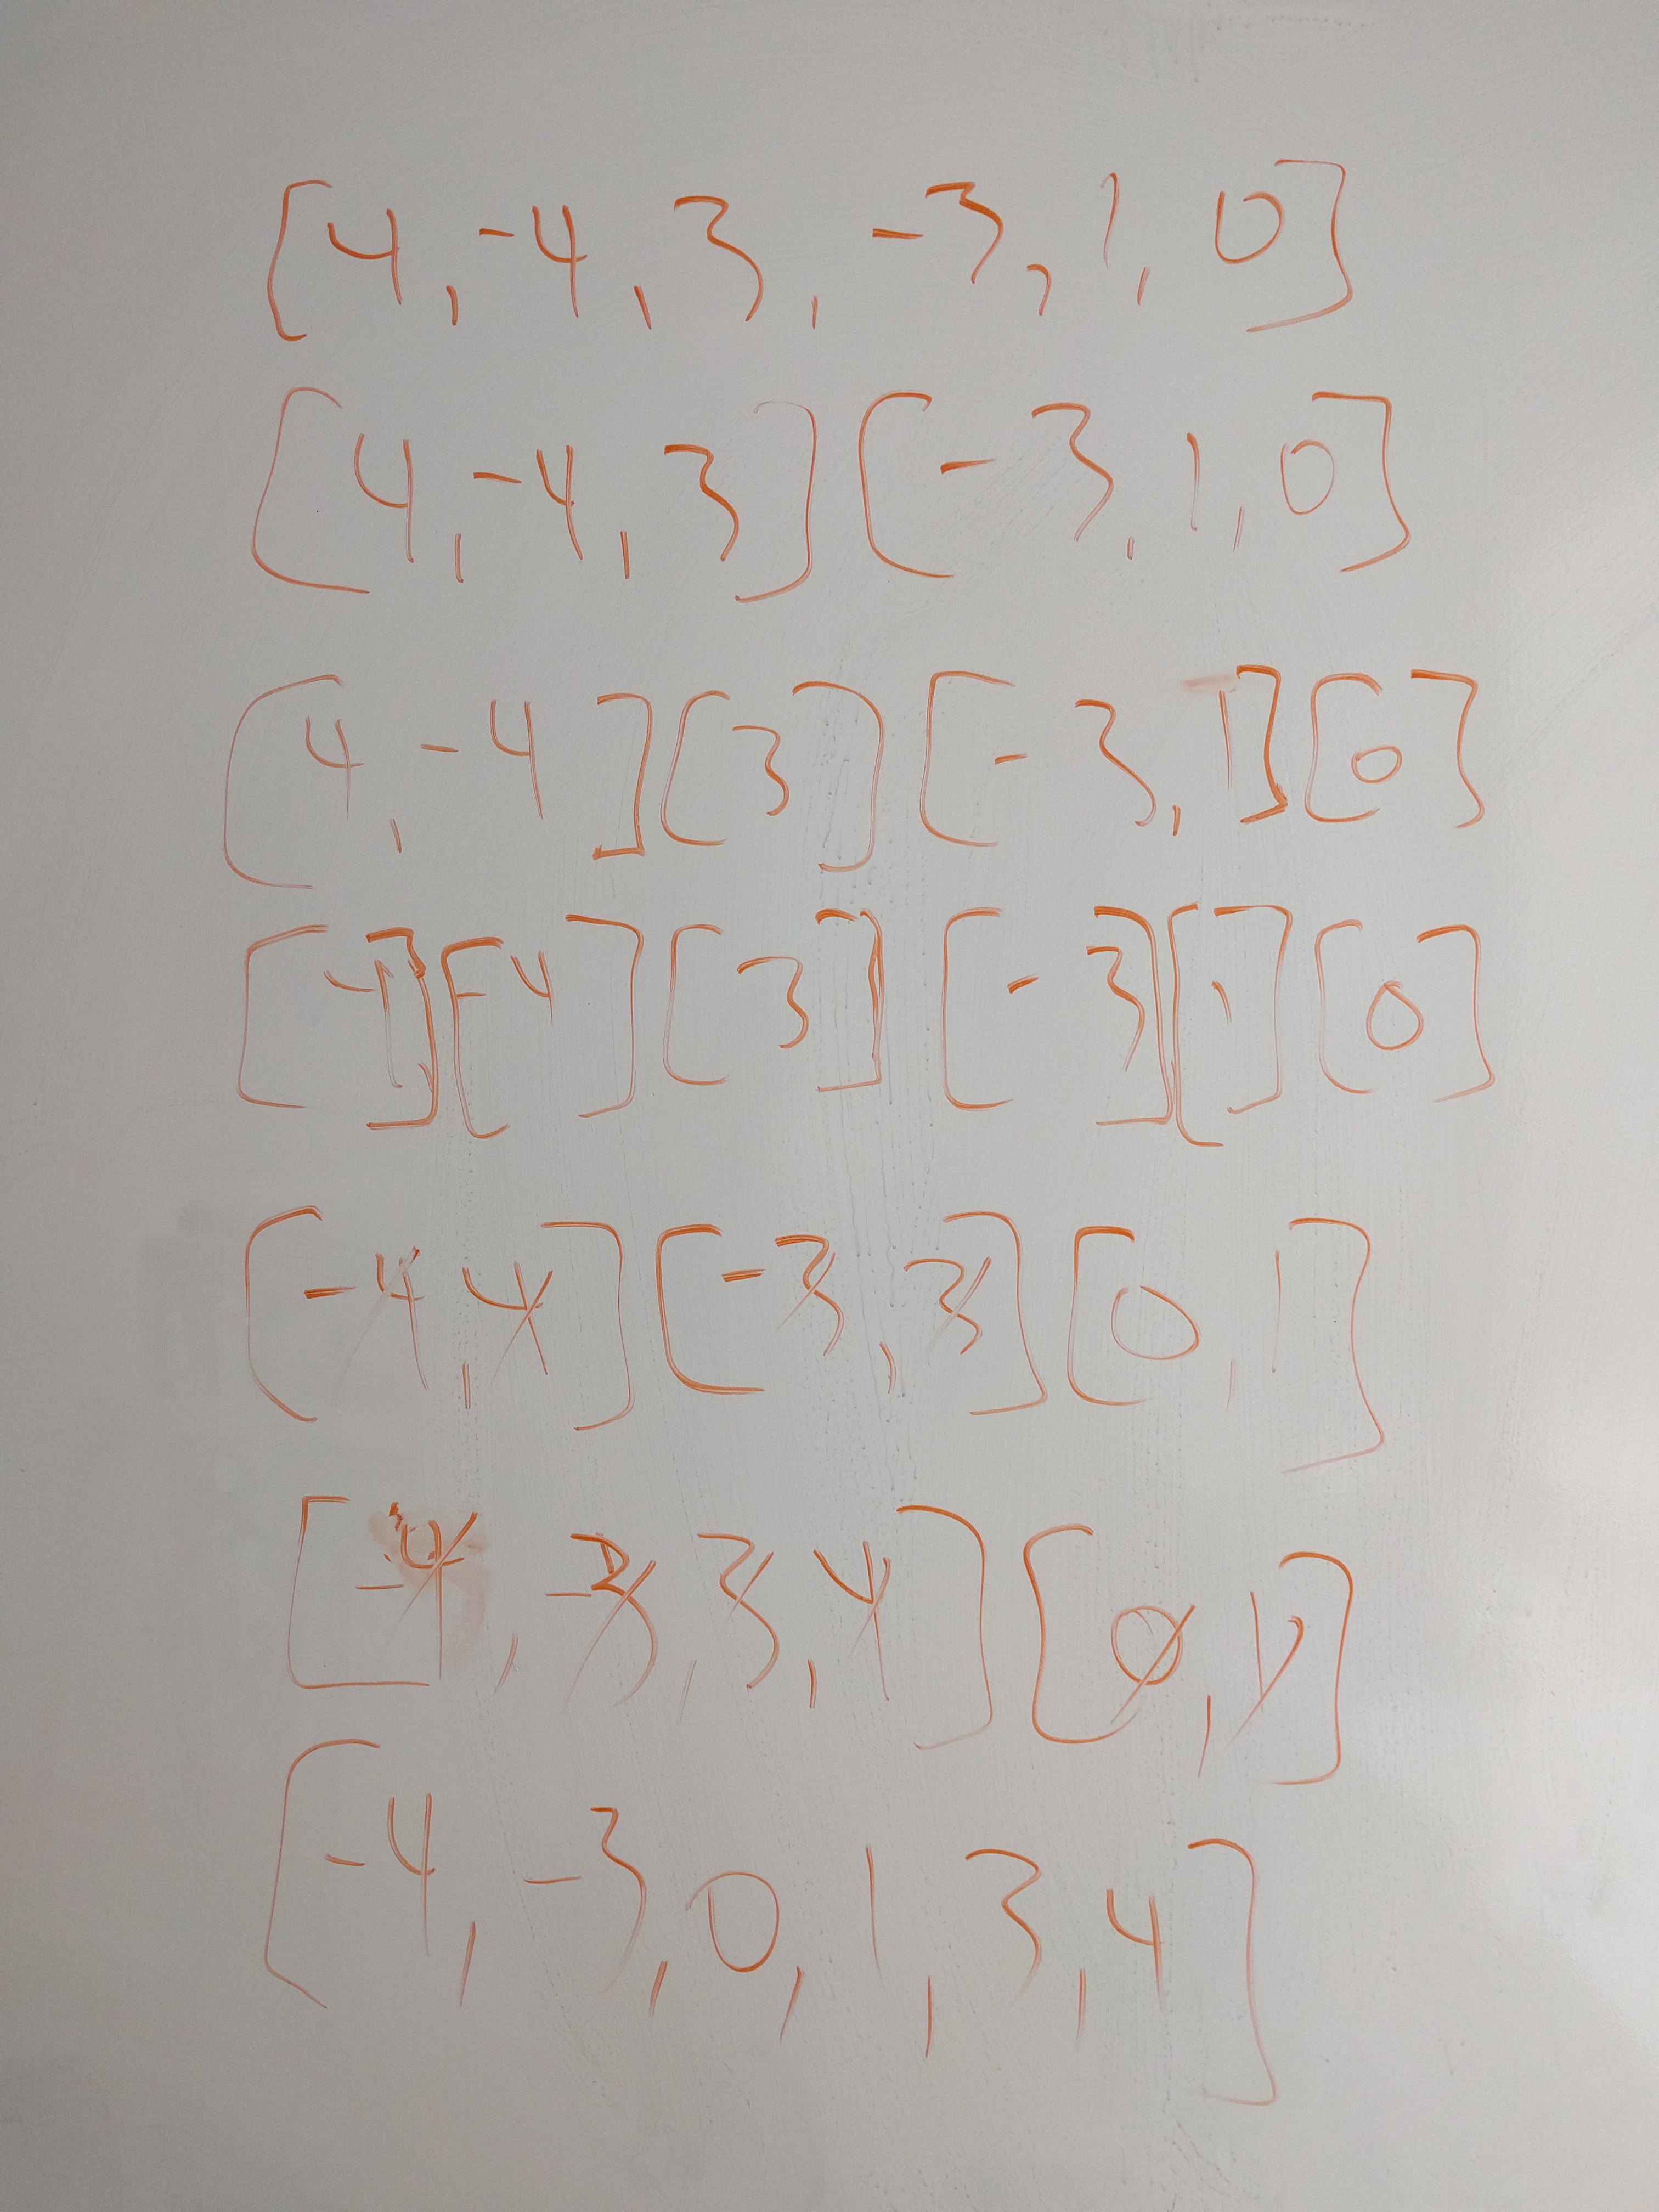 [4,-4,3,-3,1,0]
[4,-4,3][-3,1,0]
[4,-4][3][-3,1][0]
[4][-4][3][-3][1][0]
[-4,4][-3,3][0,1]
[-4,-3,3,4][0,1]
[-4,-3,0,1,3,4]